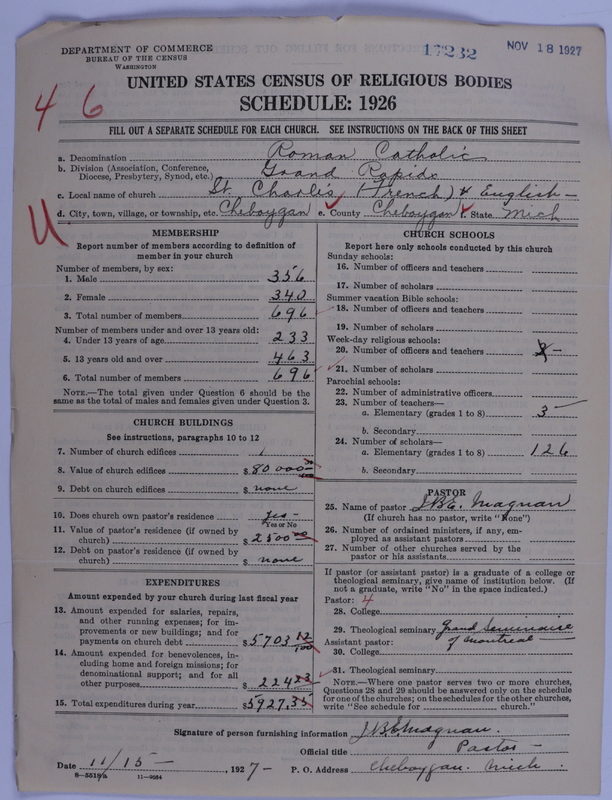 DEPARTMENT OF COMMERCE
BUREAU OF THE CENSUS
WASHINGTON
17232
NOV 18 1927
UNITED STATES CENSUS OF RELIGIOUS BODIES
SCHEDULE: 1926
4 6
FILL OUT A SEPARATE SCHEDULE FOR EACH CHURCH. SEE INSTRUCTIONS ON THE BACK OF THIS SHEET
a. Denomination Roman Catholic
b. Division (Association, Conference, Diocese, Presbytery, Synod, etc.) Grand Rapids
c. Local name of church St. Charles (French) & English
d. City, town, village, or township, etc. Cheboygan e. County Cheboygan f. State Mich
U
MEMBERSHIP
Report number of members according to definition of
member in your church
Number of members, by sex:
1. Male 356
2. Female 340
3. Total number of members 696
Number of members under and over 13 years old:
4. Under 13 years of age 233
5. 13 years old and over 463
6. Total number of members 696
NOTE.—The total given under Question 6 should be the
same as the total of males and females given under Question 3.
CHURCH BUILDINGS
See instructions, paragraphs 10 to 12
7. Number of church edifices 1
8. Value of church edifices $ 80 000
9. Debt on church edifices $ none
10. Does church own pastor's residence yes
Yes or No
11. Value of pastor's residence (if owned by
church) $ 2500 00
12. Debt on pastor's residence (if owned by
church) $ none
EXPENDITURES
Amount expended by your church during last fiscal year
13. Amount expended for salaries, repairs,
and other running expenses; for im-
provements or new buildings; and for
payments on church debt $ 5703 12/100
14. Amount expended for benevolences, in-
cluding home and foreign missions; for
denominational support; and for all
other purposes $ 224 23
15. Total expenditures during year $ 5927.35
CHURCH SCHOOLS
Report here only schools conducted by this church
Sunday schools:
16. Number of officers and teachers
17. Number of scholars
Summer vacation Bible schools:
18. Number of officers and teachers
19. Number of scholars
Week-day religious schools:
20. Number of officers and teachers
21. Number of scholars
Parochial schools:
22. Number of administrative officers
23. Number of teachers—
a. Elementary (grades 1 to 8) 3
b. Secondary
24. Number of scholars—
a. Elementary (grades 1 to 8) 126
b. Secondary
PASTOR
25. Name of pastor J.B.E. Magnan
(If church has no pastor, write "None")
26. Number of ordained ministers, if any, em-
ployed as assistant pastors
27. Number of other churches served by the
pastor or his assistants
If pastor (or assistant pastor) is a graduate of a college or
theological seminary, give name of institution below. (If
not a graduate, write "No" in the space indicated.)
Pastor: 4
28. College
29. Theological seminary Grand Seminaire
of Montreal
Assistant pastor:
30. College
31. Theological seminary
NOTE.—When one pastor serves two or more churches,
Questions 28 and 29 should be answered only on the schedule
for one of the churches; on the schedules for the other churches,
write "See schedule for church."
Signature of person furnishing information J.B.E. Magnan.
Official title Pastor
Date 11/15 , 1927 P. O. Address Cheboygan. Mich.
8—5518a 11—9034